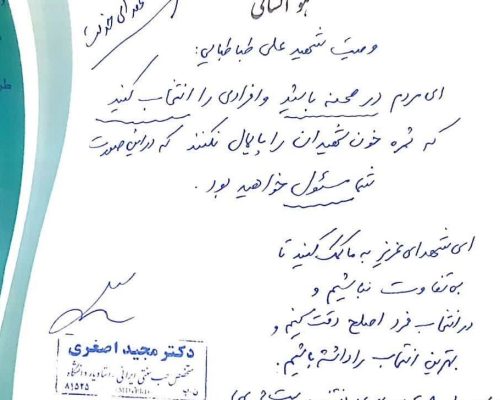 هو الشافی
وصیت شهید علی طباطبایی:
ای مردم در صحنه باشید و افرادی را انتخاب کنید
که ثمره خون شهیدان را پایمال نکنند که در این صورت
شما مسئول خواهید بود.
ای شهدای عزیز به ما کمک کنید تا
بی تفاوت نباشیم و
در انتخاب فرد اصلح دقت کنیم و
بهترین انتخاب را داشته باشیم.
دکتر مجید اصغری
متخصص طب سنتی ایرانی، استادیار دانشگاه
MD.PhD
۸۱۵۲۵